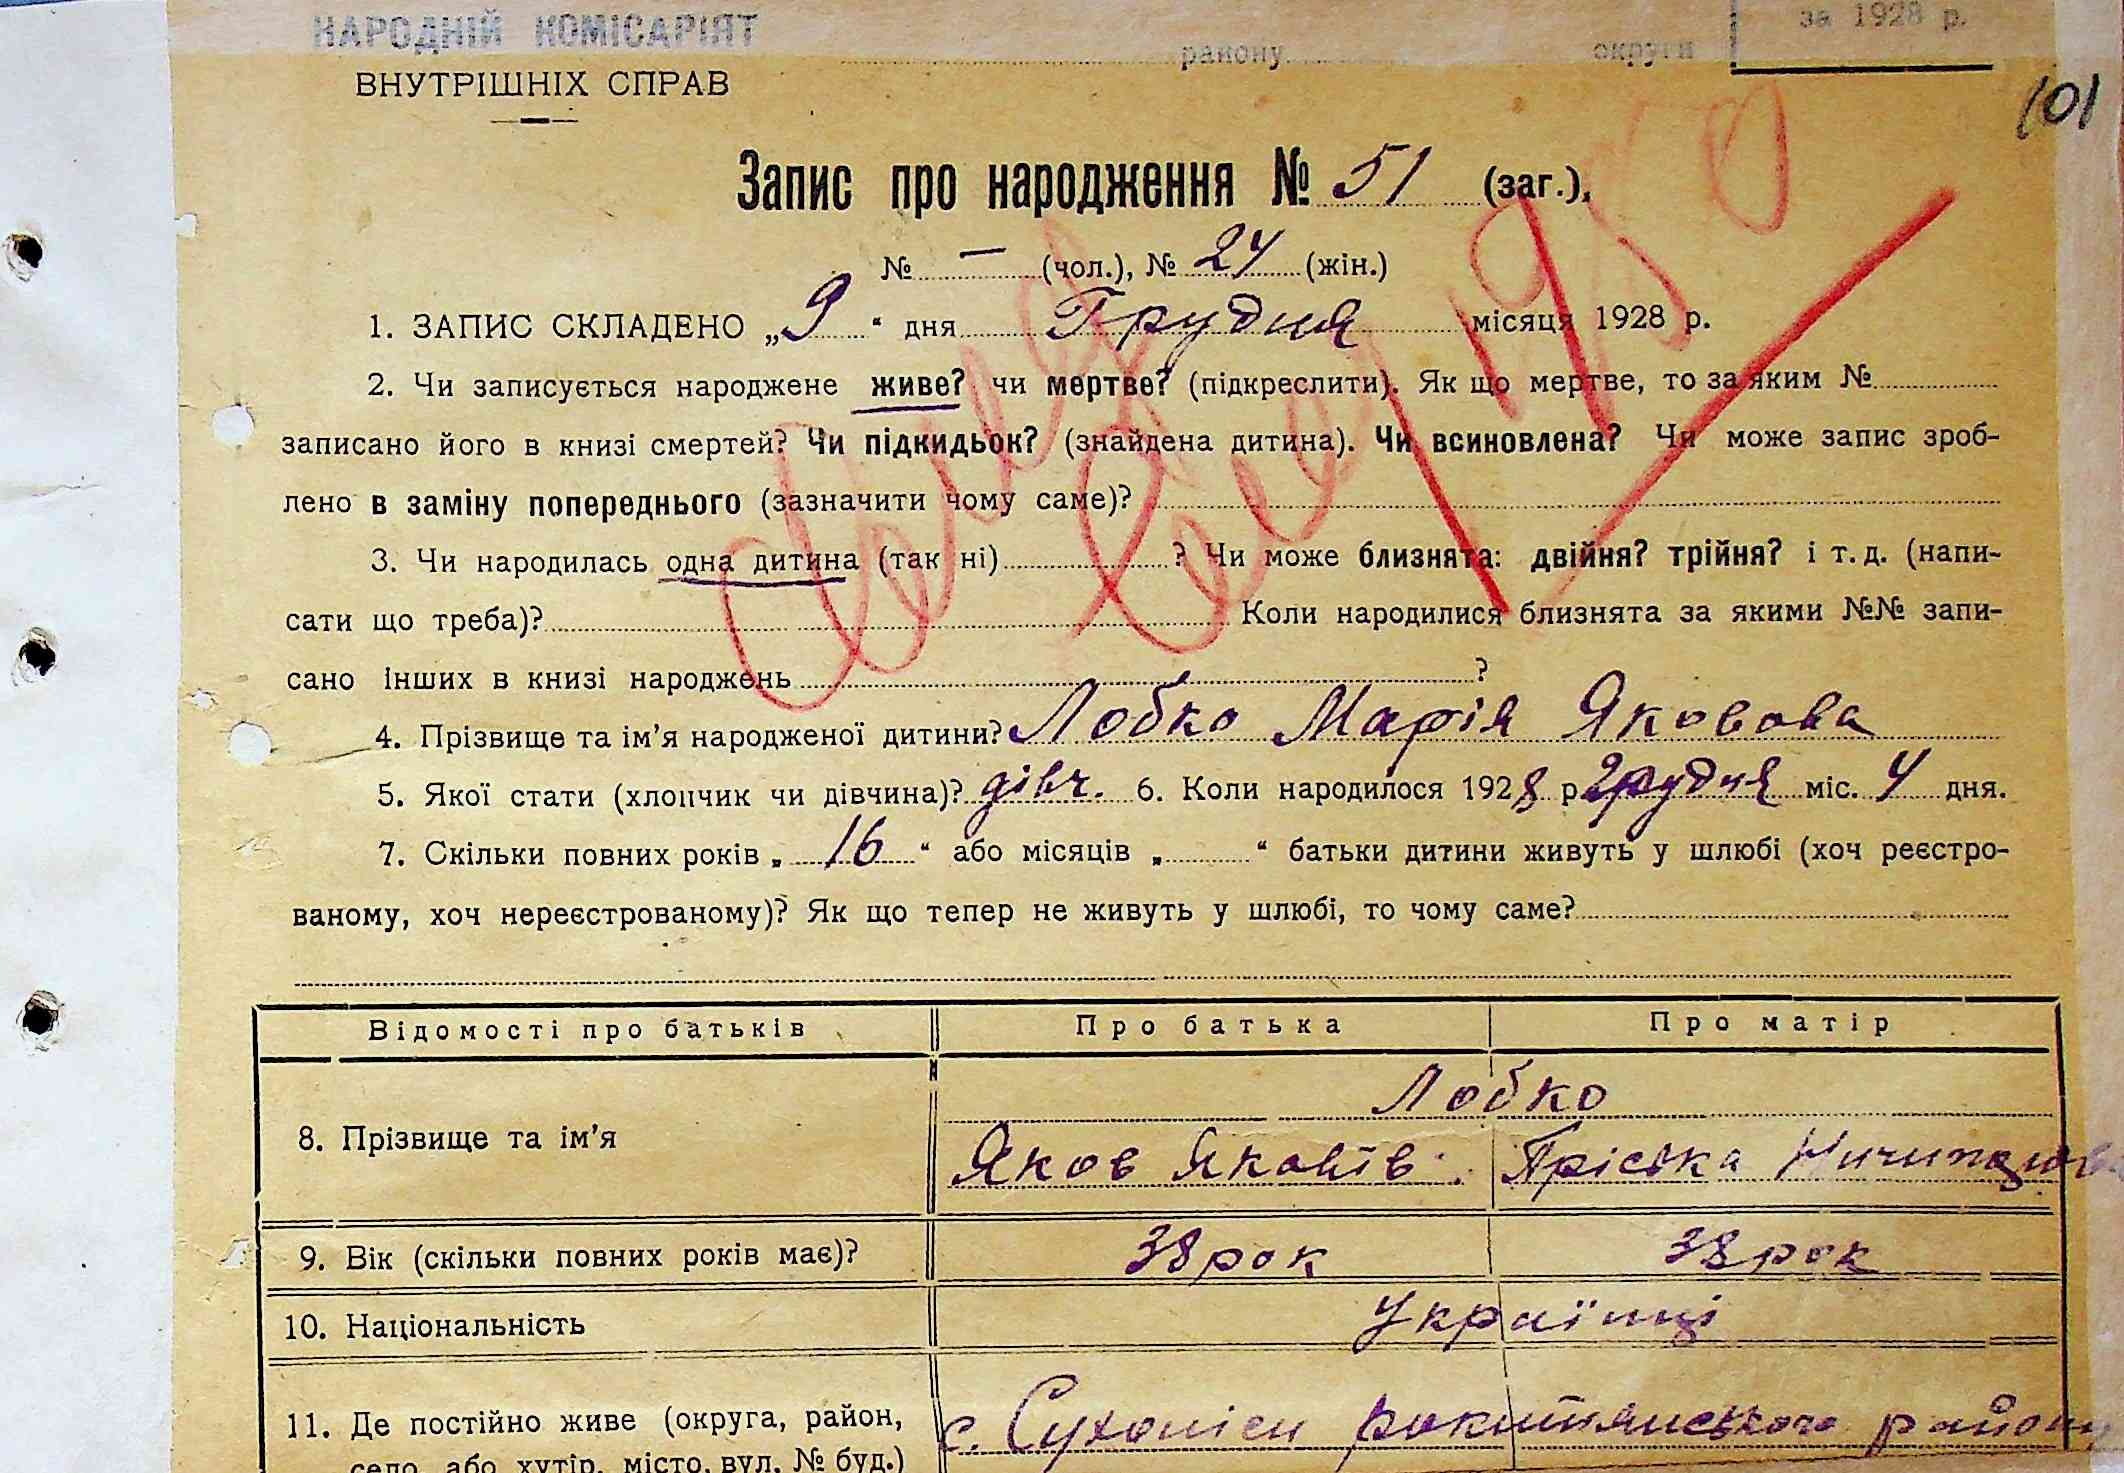 НАРОДНІЙ КОМІСАРІЯТ
ВНУТРІШНІХ СПРАВ
району округи
за 1928 р.
101
Запис про народження № 51 (заг.),
№ — (чол.), № 24 (жін.)
1. ЗАПИС СКЛАДЕНО „9“ дня Грудня місяця 1928 р.
2. Чи записується народжене живе? чи мертве? (підкреслити). Як що мертве, то за яким №
записано його в книзі смертей? Чи підкидьок? (знайдена дитина). Чи всиновлена? Чи може запис зроб-
лено в заміну попереднього (зазначити чому саме)?
3. Чи народилась одна дитина (так ні) ? Чи може близнята: двійня? трійня? і т. д. (напи-
сати що треба)? Коли народилися близнята за якими №№ запи-
сано інших в книзі народжень ?
4. Прізвище та ім’я народженої дитини? Лобко Марія Яковова
5. Якої стати (хлопчик чи дівчина)? дівч. 6. Коли народилося 1928 р. Грудня міс. 4 дня.
7. Скільки повних років „ 16 “ або місяців „ “ батьки дитини живуть у шлюбі (хоч реєстро-
ваному, хоч нереєстрованому)? Як що тепер не живуть у шлюбі, то чому саме?
Відомості про батьків Про батька Про матір
Лобко
8. Прізвище та ім’я Яков Яковів Пріська Ничипорова
9. Вік (скільки повних років має)? 38 рок 38 рок
10. Національність Українці
11. Де постійно живе (округа, район, с. Сухоліси рокитянського району
село, або хутір, місто, вул. № буд.)